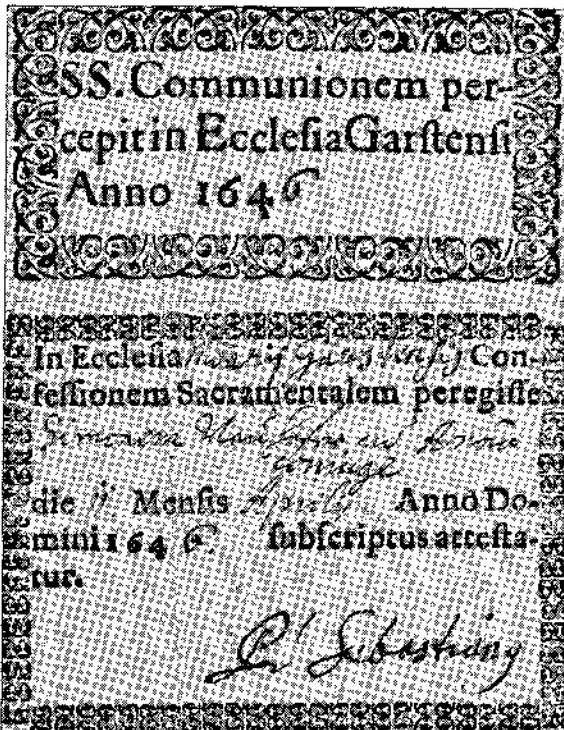 SS. Communionem per-
cepit in Ecclesia Garstensi
Anno 1646
In Ecclesia Con-
fessionem Sacramentalem peregisse
Simonem
coniuge
die Mensis Aprilis Anno Do-
mini 1646. subscriptus attesta-
tur.
P. Sebastianus